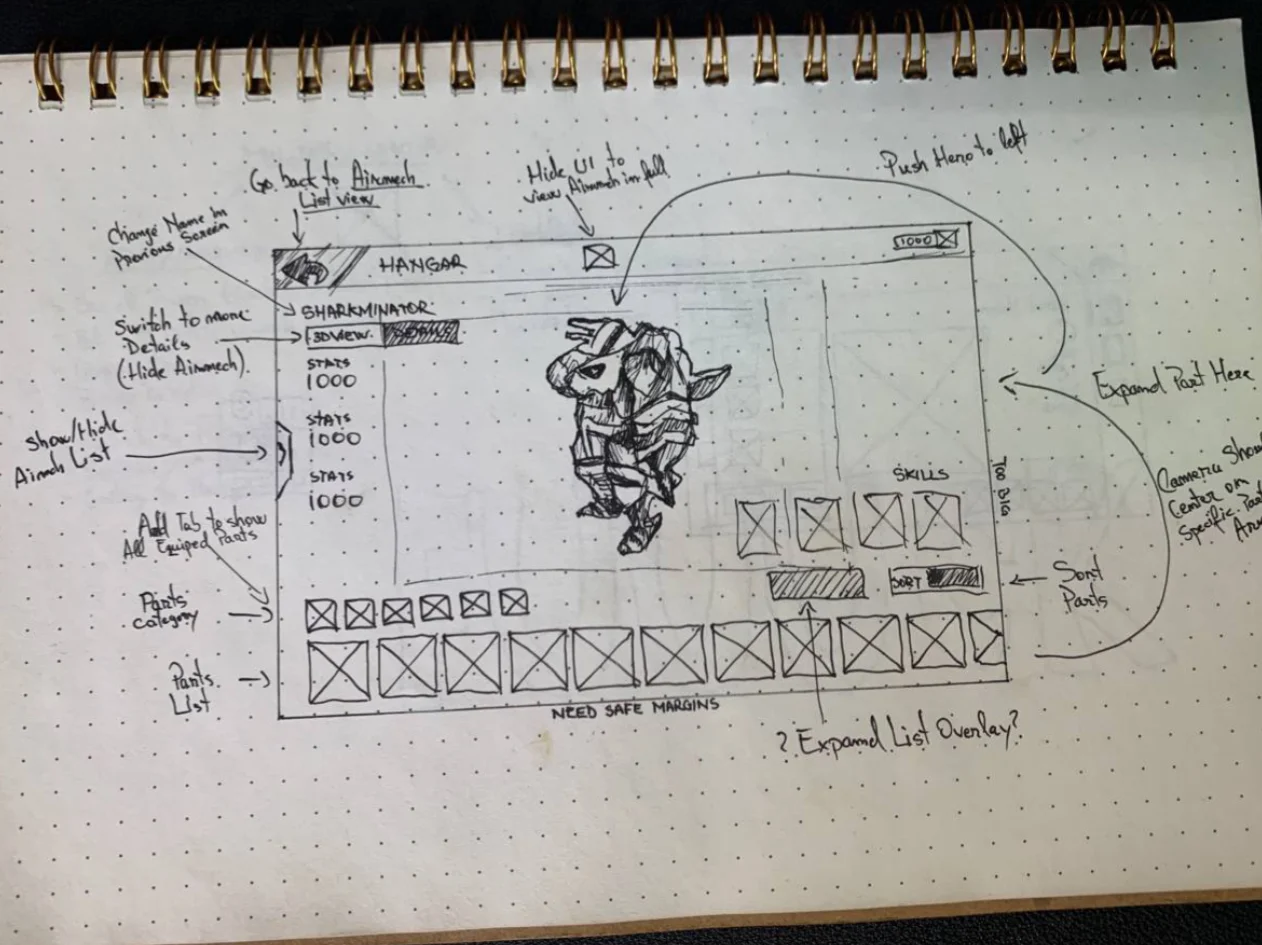 Go back to Airmech
List view
Hide UI to
view Airmech in full
Push Hero to left
Change Name in
Previous Screen
HANGAR
1000
SHARKMINATOR
Switch to more
Details
(Hide Airmech).
3D VIEW
STATS
1000
STATS
1000
STATS
1000
Show/Hide
Airmech List
Expand Part Here
Camera Shou
Center on
Specific Part
SKILLS
TOO BIG
Add Tab to show
All Equiped Parts
SORT
Sort
Parts
Parts
category
Parts
List
NEED SAFE MARGINS
? Expand List Overlay?